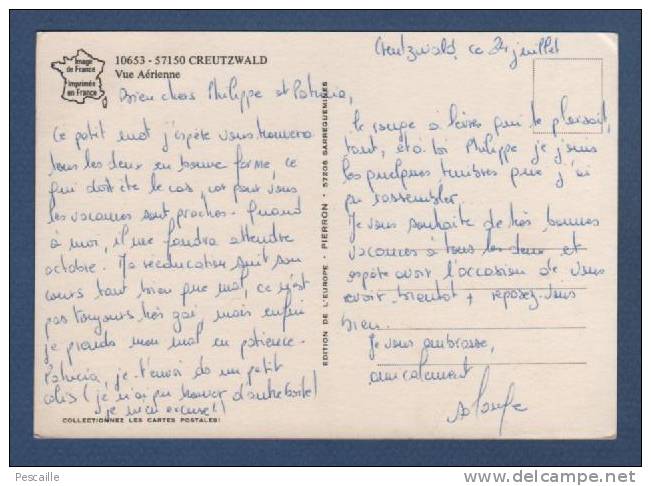 Image
de France
Imprimée
en France
10653 - 57150 CREUTZWALD
Vue Aérienne
Creutzwald, ce 24 juillet
Bien chers Philippe et Patricia,
Ce petit mot j'espère vous trouvera
tous les deux en bonne forme, ce
qui doit être le cas, car pour vous
les vacances sont proches. Quand
à moi, il me faudra attendre
octobre. Ma rééducation suit son
cours tant bien que mal, ce n'est
pas toujours très gai, mais enfin
je prends mon mal en patience.
Patricia, je t'envoi ds un petit
colis (je n'ai pu trouver d'autre boite!
je m'en excuse!!)
COLLECTIONNEZ LES CARTES POSTALES!
EDITION DE L'EUROPE - PIERRON - 57206 SARREGUEMINES
le rouge à lèvres qui te plaisait
tant, et à toi Philippe je joins
les quelques timbres que j'ai
pu rassembler.
Je vous souhaite de très bonnes
vacances à tous les deux et
espère avoir l'occasion de vous
revoir bientôt + reposez-vous
bien.
Je vous embrasse,
amicalement
Pescaille
www.delcampe.net